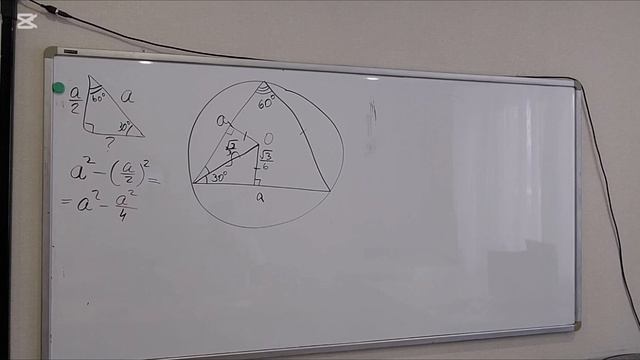 a/2
60°
a
30°
?
a² - (a/2)² =
= a² - a²/4
60°
a
O
√3/6
30°
a